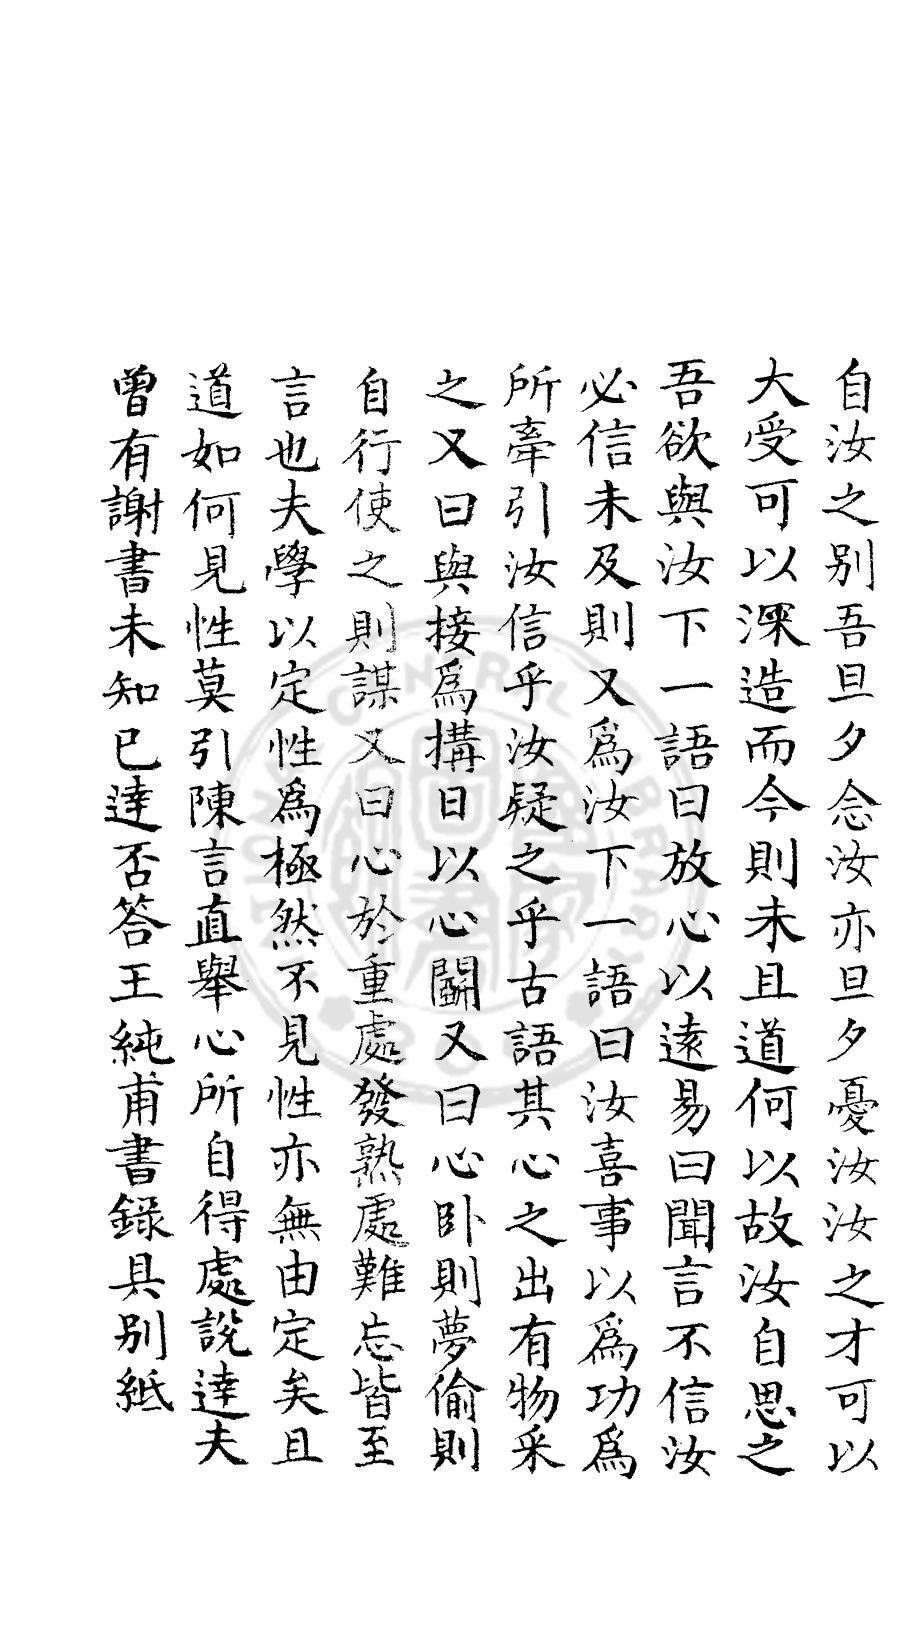 自汝之别吾旦夕念汝亦旦夕憂汝汝之才可以
大受可以深造而今則未且道何以故汝自思之
吾欲與汝下一語曰放心以遠易曰聞言不信汝
必信未及則又為汝下一語曰汝喜事以為功為
所牽引汝信乎汝疑之乎古語其心之出有物采
之又曰與接為搆日以心鬭又曰心卧則夢偷則
自行使之則謀又曰心於重處發熟處難忘皆至
言也夫學以定性為極然不見性亦無由定矣且
道如何見性莫引陳言直舉心所自得處説達夫
曾有謝書未知已達否答王純甫書錄具别紙